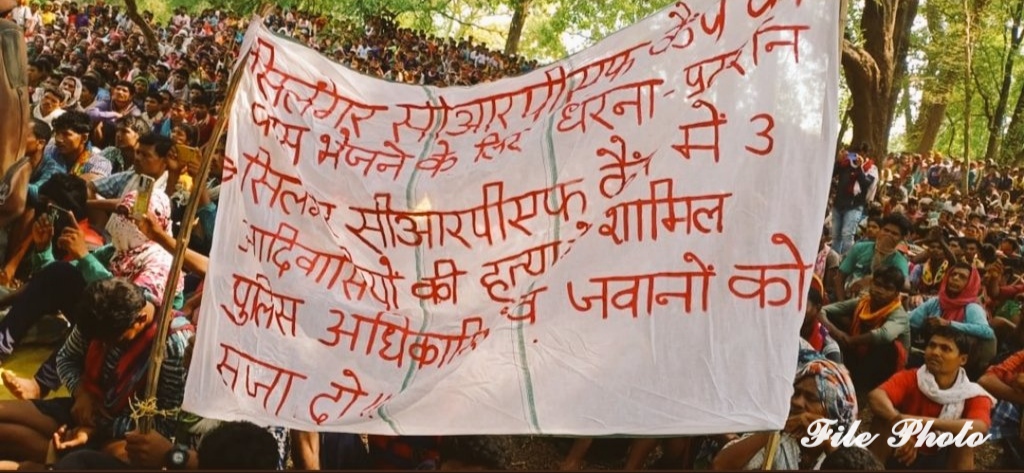 सिलंगेर सीआरपीएफ कैंप को
वापस भेजने के लिए धरना-प्रदर्शन
सिलंगेर सीआरपीएफ कैंप में 3
आदिवासियों की हत्या में शामिल
पुलिस अधिकारी व जवानों को
सजा दो!!
File Photo